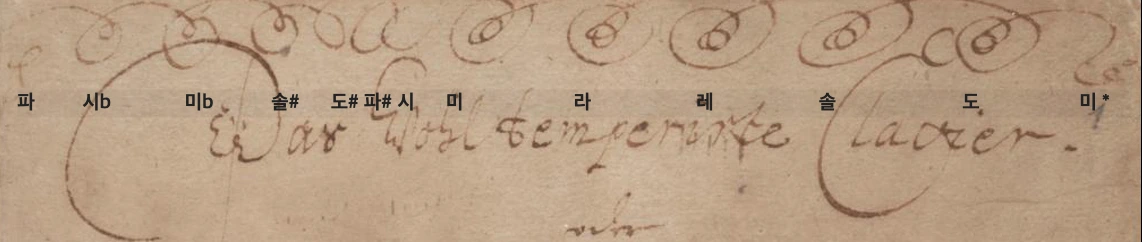 파 시b 미b 솔# 도# 파# 시 미 라 레 솔 도 미 *
Das Wohltemperirte Clavier.
oder